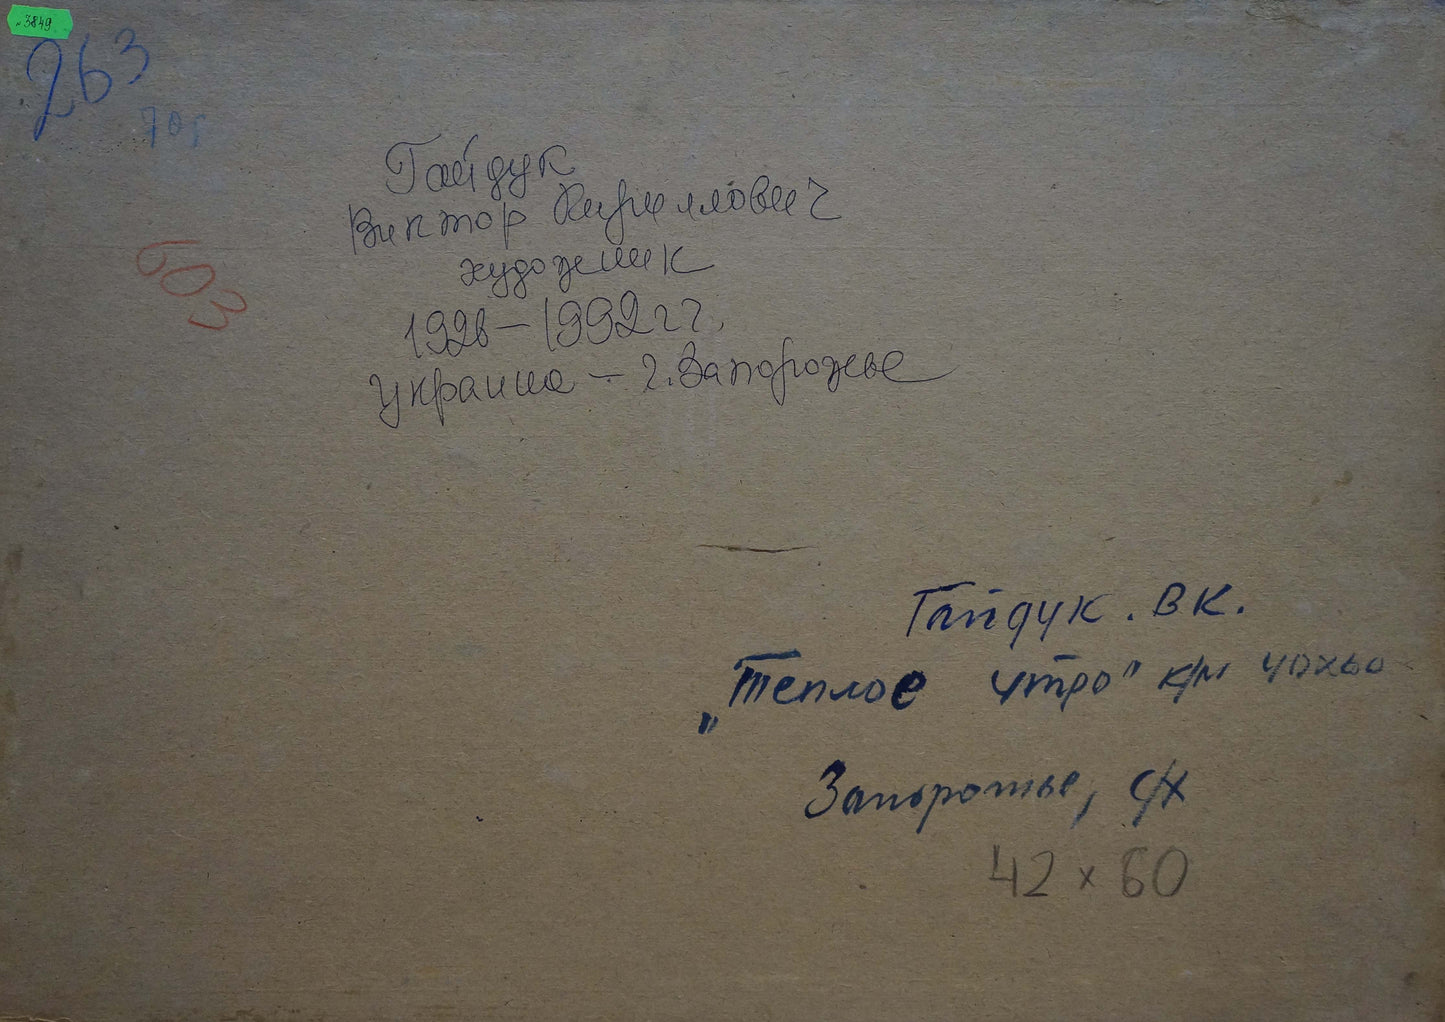 №3849
263
70г
603
Гайдук
Виктор Кириллович
художник
1926-1992 г г.
Украина - г. Запорожье
Гайдук. В К.
„Теплое утро" к/м 40х60
Запорожье, с/х
42 х 60